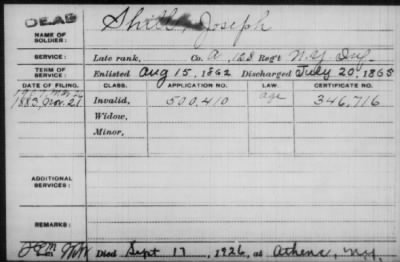 DEAD
NAME OF SOLDIER: Joseph
SERVICE: Late rank, Co. A, 123 Reg't N.Y. Inf.
TERM OF SERVICE: Enlisted Aug 15, 1862 Discharged July 20, 1865
DATE OF FILING. CLASS. APPLICATION NO. LAW. CERTIFICATE NO.
1883, Nov. 27 Invalid, 500,410 age 346,716
Widow,
Minor,
ADDITIONAL SERVICES:
REMARKS:
Died Sept 17, 1926, at Athens, N.Y.